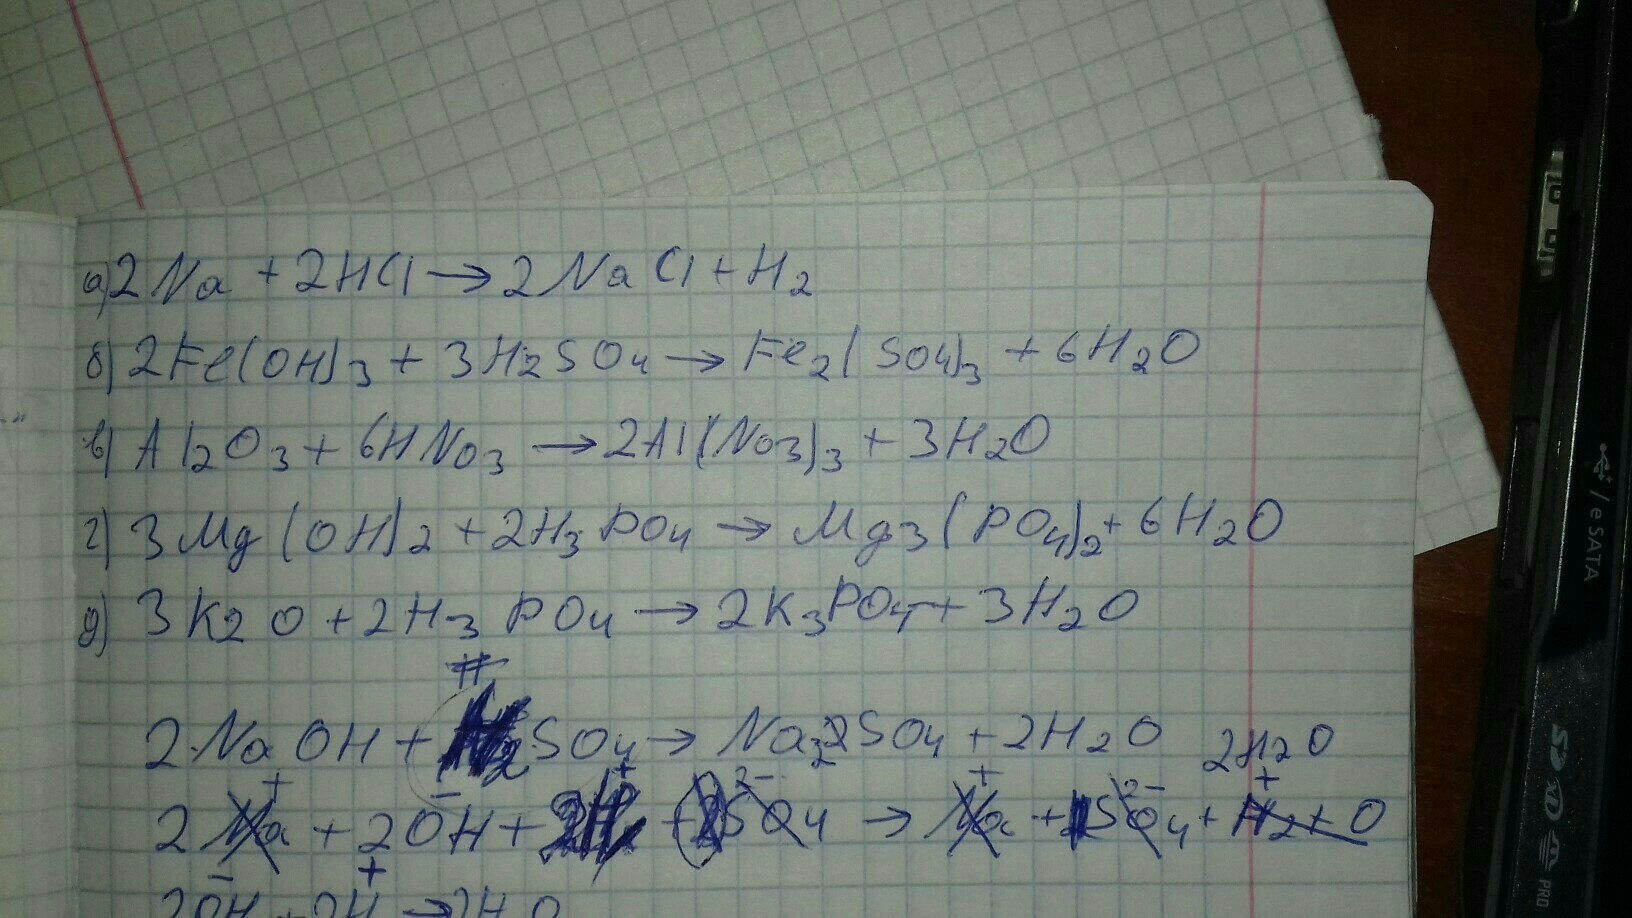 а) 2Na + 2HCl → 2NaCl + H2
б) 2Fe(OH)3 + 3H2SO4 → Fe2(SO4)3 + 6H2O
в) Al2O3 + 6HNO3 → 2Al(NO3)3 + 3H2O
г) 3Mg(OH)2 + 2H3PO4 → Mg3(PO4)2 + 6H2O
д) 3K2O + 2H3PO4 → 2K3PO4 + 3H2O
H
2NaOH + H2SO4 → Na2SO4 + 2H2O 2H2O
2Na+ + 2OH- + 2H+ + SO4 2- → Na+ + SO4 2- + H2+O
2OH- + 2H+ → 2H2O
/eSATA
SD xD
PRO